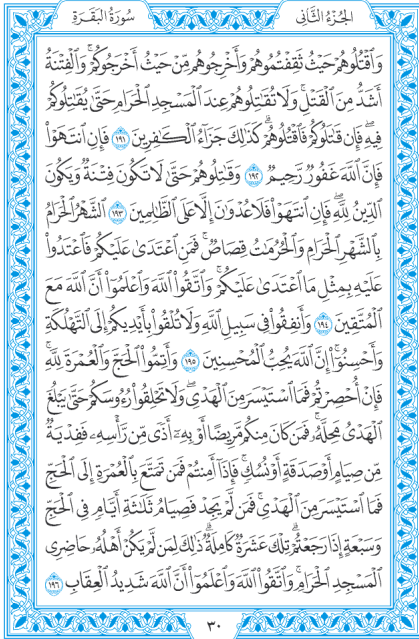 الجُزْءُ الثَّانِي
سُورَةُ البَقَرَةِ
وَٱقْتُلُوهُمْ حَيْثُ ثَقِفْتُمُوهُمْ وَأَخْرِجُوهُم مِّنْ حَيْثُ أَخْرَجُوكُمْ ۚ وَٱلْفِتْنَةُ
أَشَدُّ مِنَ ٱلْقَتْلِ ۚ وَلَا تُقَٰتِلُوهُمْ عِندَ ٱلْمَسْجِدِ ٱلْحَرَامِ حَتَّىٰ يُقَٰتِلُوكُمْ
فِيهِ ۖ فَإِن قَٰتَلُوكُمْ فَٱقْتُلُوهُمْ ۗ كَذَٰلِكَ جَزَآءُ ٱلْكَٰفِرِينَ ١٩١ فَإِنِ ٱنتَهَوْا۟
فَإِنَّ ٱللَّهَ غَفُورٌ رَّحِيمٌ ١٩٢ وَقَٰتِلُوهُمْ حَتَّىٰ لَا تَكُونَ فِتْنَةٌ وَيَكُونَ
ٱلدِّينُ لِلَّهِ ۖ فَإِنِ ٱنتَهَوْا۟ فَلَا عُدْوَٰنَ إِلَّا عَلَى ٱلظَّٰلِمِينَ ١٩٣ ٱلشَّهْرُ ٱلْحَرَامُ
بِٱلشَّهْرِ ٱلْحَرَامِ وَٱلْحُرُمَٰتُ قِصَاصٌ ۚ فَمَنِ ٱعْتَدَىٰ عَلَيْكُمْ فَٱعْتَدُوا۟
عَلَيْهِ بِمِثْلِ مَا ٱعْتَدَىٰ عَلَيْكُمْ ۚ وَٱتَّقُوا۟ ٱللَّهَ وَٱعْلَمُوٓا۟ أَنَّ ٱللَّهَ مَعَ
ٱلْمُتَّقِينَ ١٩٤ وَأَنفِقُوا۟ فِى سَبِيلِ ٱللَّهِ وَلَا تُلْقُوا۟ بِأَيْدِيكُمْ إِلَى ٱلتَّهْلُكَةِ ۛ
وَأَحْسِنُوٓا۟ ۛ إِنَّ ٱللَّهَ يُحِبُّ ٱلْمُحْسِنِينَ ١٩٥ وَأَتِمُّوا۟ ٱلْحَجَّ وَٱلْعُمْرَةَ لِلَّهِ ۚ
فَإِنْ أُحْصِرْتُمْ فَمَا ٱسْتَيْسَرَ مِنَ ٱلْهَدْىِ ۖ وَلَا تَحْلِقُوا۟ رُءُوسَكُمْ حَتَّىٰ يَبْلُغَ
ٱلْهَدْىُ مَحِلَّهُۥ ۚ فَمَن كَانَ مِنكُم مَّرِيضًا أَوْ بِهِۦٓ أَذًى مِّن رَّأْسِهِۦ فَفِدْيَةٌ
مِّن صِيَامٍ أَوْ صَدَقَةٍ أَوْ نُسُكٍ ۚ فَإِذَآ أَمِنتُمْ فَمَن تَمَتَّعَ بِٱلْعُمْرَةِ إِلَى ٱلْحَجِّ
فَمَا ٱسْتَيْسَرَ مِنَ ٱلْهَدْىِ ۚ فَمَن لَّمْ يَجِدْ فَصِيَامُ ثَلَٰثَةِ أَيَّامٍ فِى ٱلْحَجِّ
وَسَبْعَةٍ إِذَا رَجَعْتُمْ ۗ تِلْكَ عَشَرَةٌ كَامِلَةٌ ۗ ذَٰلِكَ لِمَن لَّمْ يَكُنْ أَهْلُهُۥ حَاضِرِى
ٱلْمَسْجِدِ ٱلْحَرَامِ ۚ وَٱتَّقُوا۟ ٱللَّهَ وَٱعْلَمُوٓا۟ أَنَّ ٱللَّهَ شَدِيدُ ٱلْعِقَابِ ١٩٦
٣٠